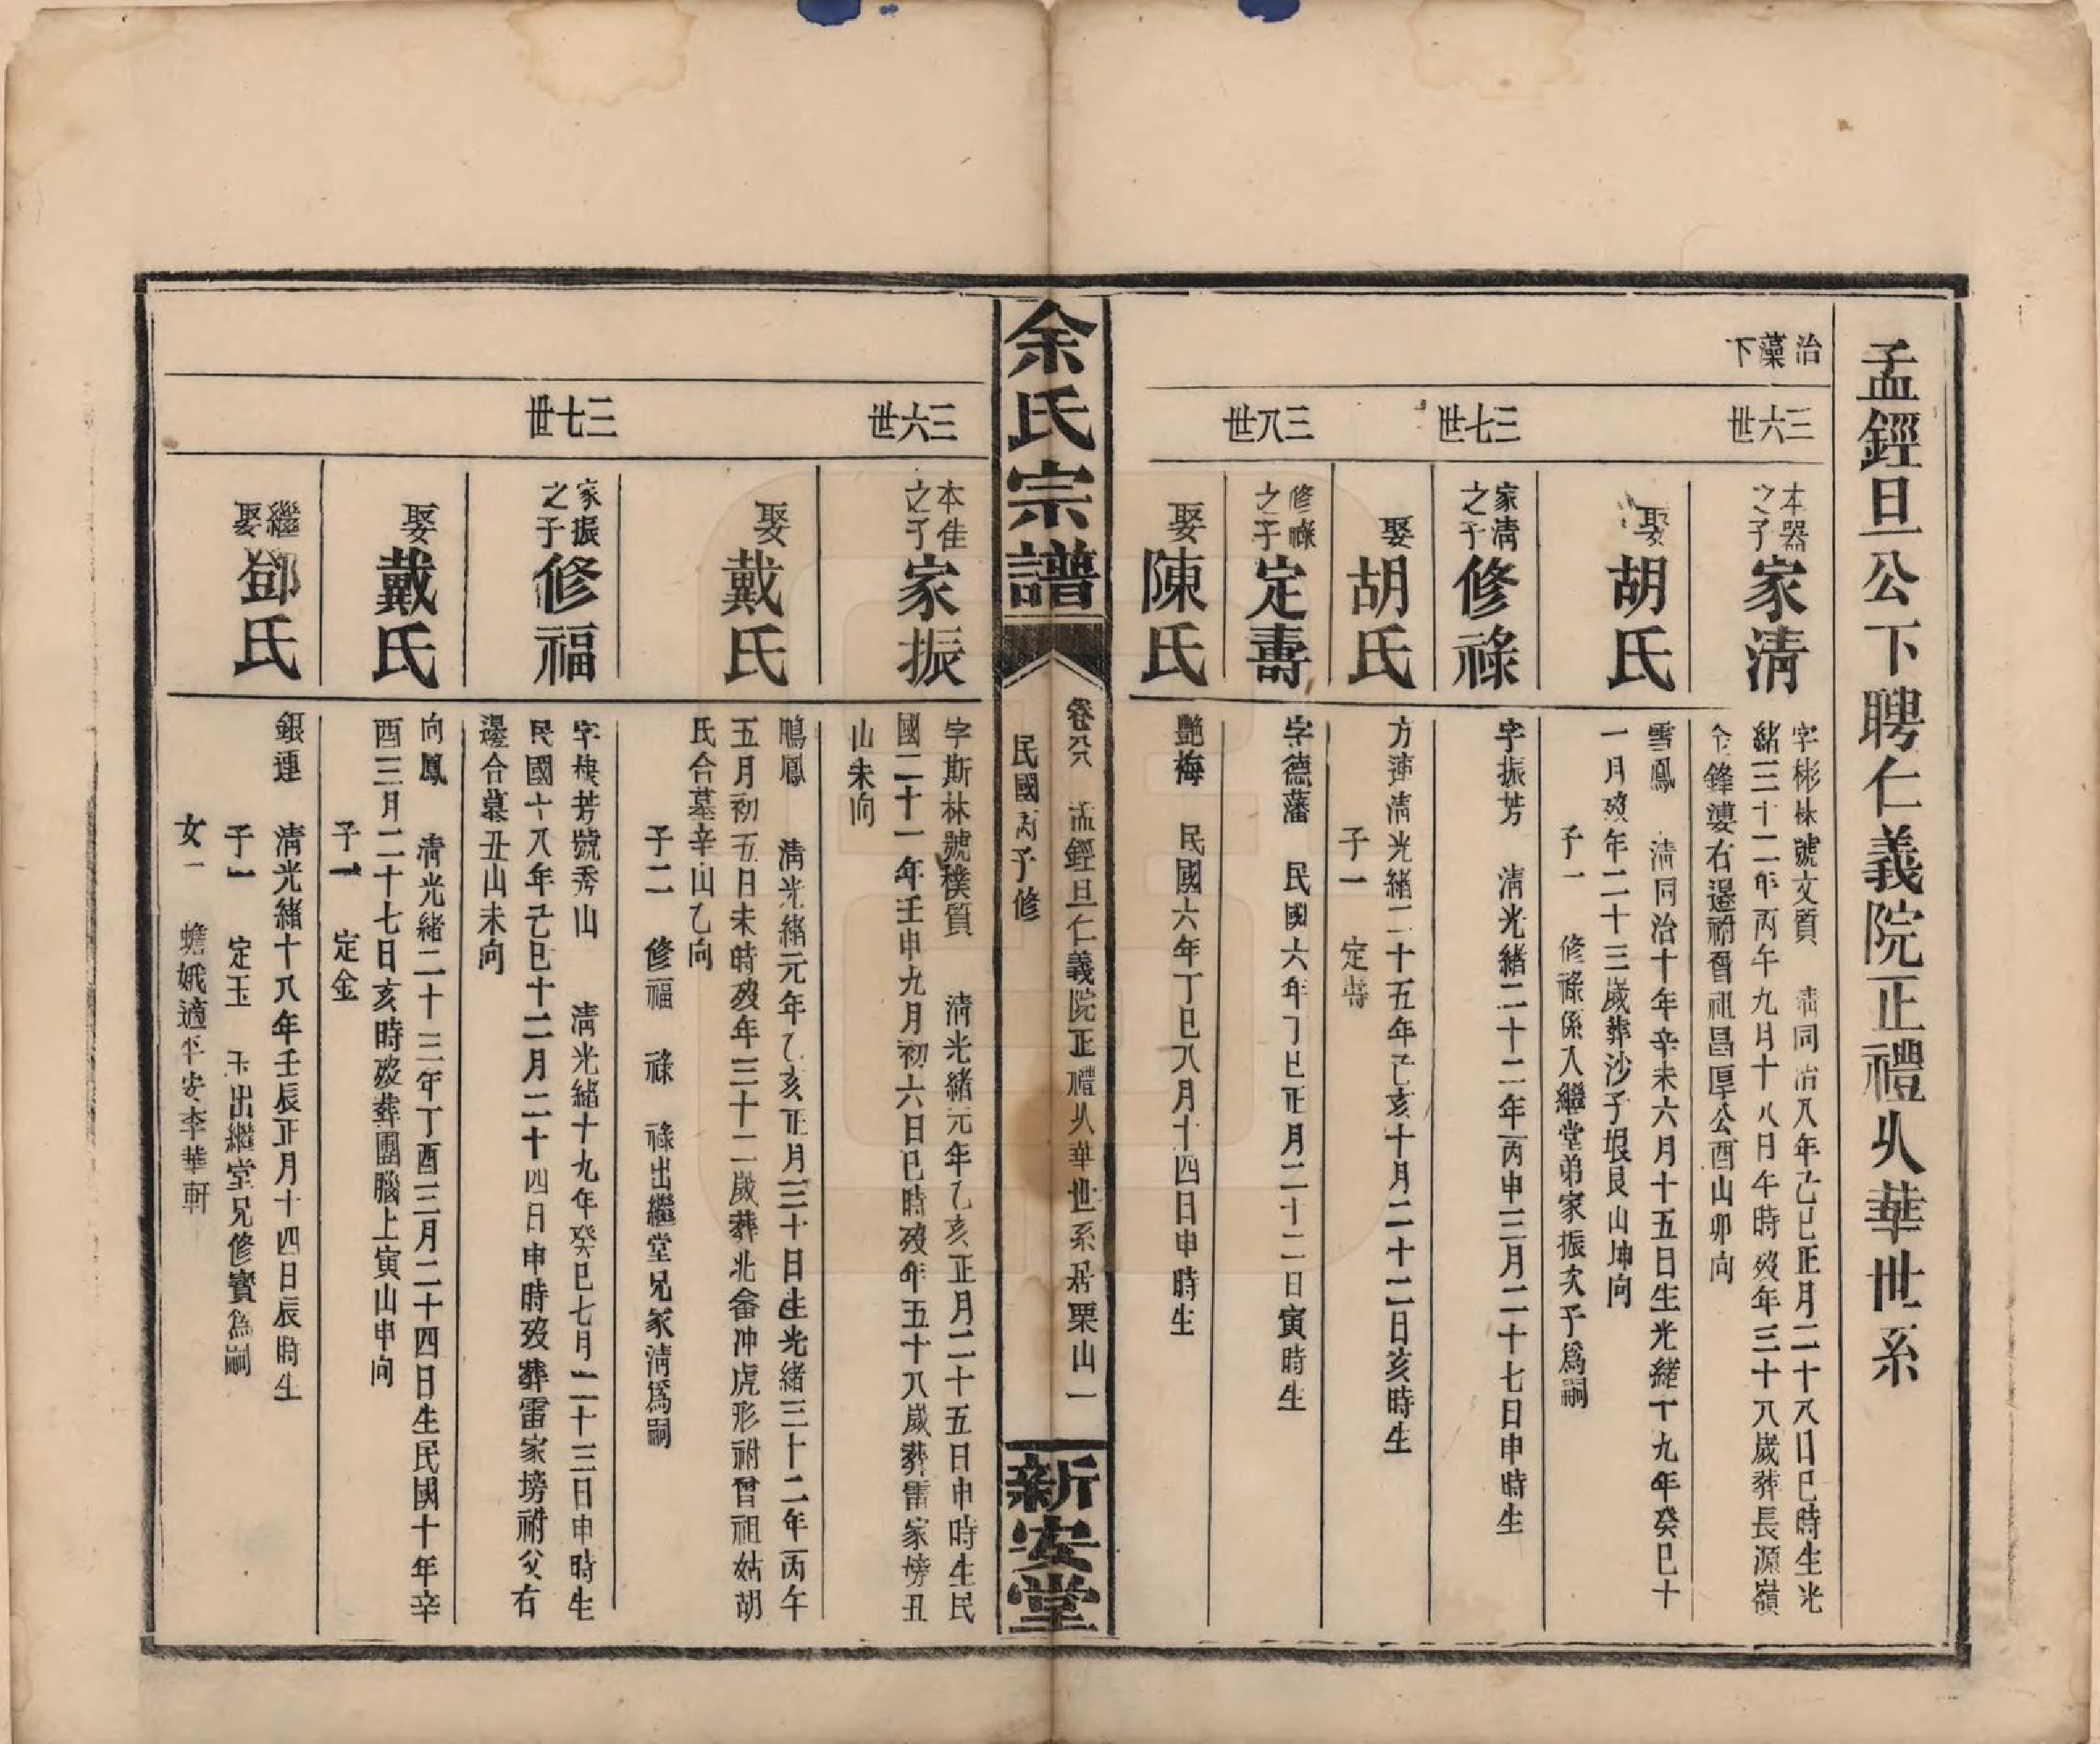 孟鏗旦公下聘仁義院正禮从華世系
治藻下
三六世
本器之子家清
字彬林號文質　清同治八年己巳正月二十八日巳時生光
緒三十二年丙午九月十八日午時歿年三十八歲葬長源嶺
仝鋒漊右邊祔曾祖昌厚公酉山卯向
娶胡氏
雪鳳　清同治十年辛未六月十五日生光緒十九年癸巳十
一月歿年二十三歲葬沙子垠艮山坤向
子一　修祿係入繼堂弟家振次子爲嗣
三七世
家清之子修祿
字振芳　清光緒二十二年丙申三月二十七日申時生
娶胡氏
方蓮清光緒二十五年己亥十月二十二日亥時生
子一　定壽
三八世
修祿之子定壽
字德藩　民國六年丁巳正月二十二日寅時生
娶陳氏
艷梅　民國六年丁巳八月十四日申時生
余氏宗譜
卷癶　孟鏗旦仁義院正禮从華世系居栗山一
民國丙子修
新安堂
三六世
本佳之子家振
字斯林號樸質　清光緒元年乙亥正月二十五日申時生民
國二十一年壬申九月初六日巳時歿年五十八歲葬雷家塝丑
山未向
娶戴氏
鵰鳳　清光緒元年乙亥正月三十日生光緒三十二年丙午
五月初五日未時歿年三十二歲葬北畬冲虎形祔曾祖姑胡
氏合墓辛山乙向
子二　修福　祿　祿出繼堂兄家清爲嗣
三七世
家振之子修福
字棣芳號秀山　清光緒十九年癸巳七月二十三日申時生
民國十八年己巳十二月二十四日申時歿葬雷家塝祔父右
邊合墓丑山未向
娶戴氏
向鳳　清光緒二十三年丁酉三月二十四日生民國十年辛
酉三月二十七日亥時歿葬團腦上寅山申向
子一　定金
繼娶鄧氏
銀連　清光緒十八年壬辰正月十四日辰時生
子一　定玉　玉出繼堂兄修寶爲嗣
女一　蟾娥適平安李華軒